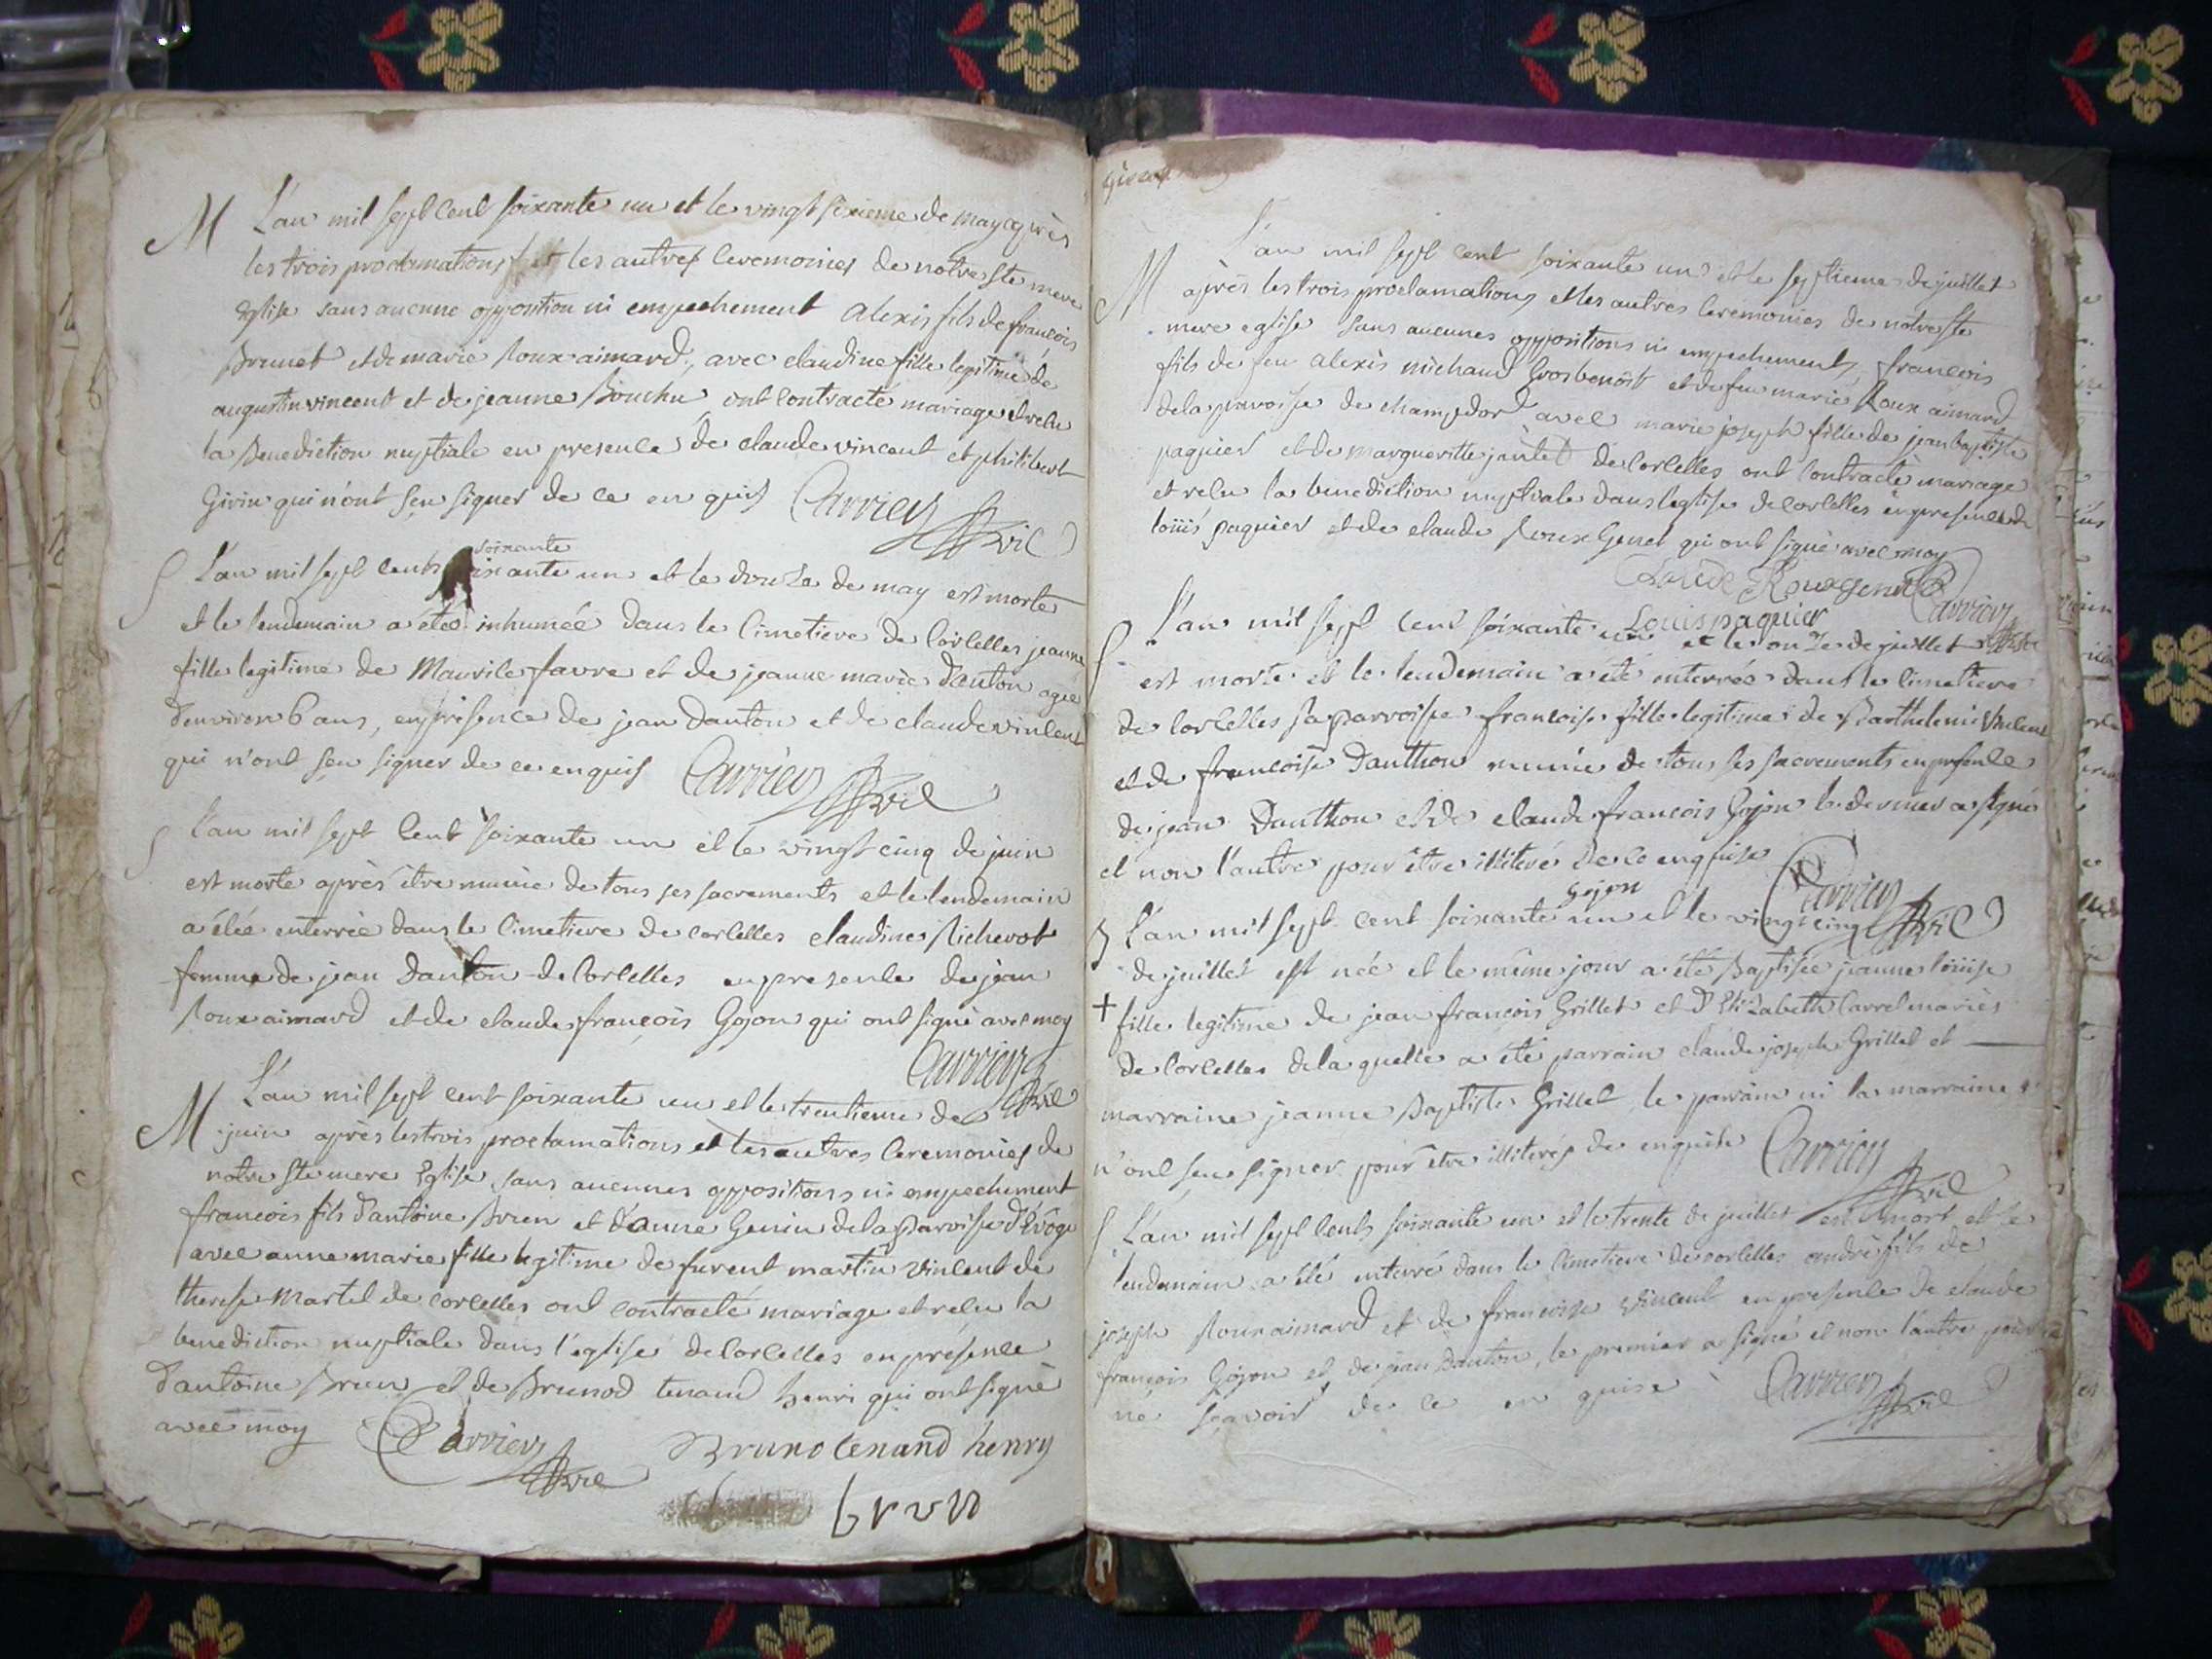 M L'an mil sept cent soixante un et le vingt sixieme de may après
les trois proclamations et les autres ceremonies de notre ste mere
Eglise sans aucune opposition ni empechement alexis fils de francois
Brunet et de marie Roux aimard, avec claudine fille legitime de
augustin vincent et de jeanne Bouchu ont contracté mariage et recu
la Benediction nuptiale en presence de claude vincent et philibert
Girin qui n'ont seu signer de ce en quis Carrier
soixante
S L'an mil sept cents ixante un et le douze de may est morte
et le lendemain a étée inhumée dans le cimetiere de Corcelles jeanne
fille legitime de Maurice favre et de jeanne marie Danton agée
d'environ 6 ans, en présence de jean Danton et de claude vincent
qui n'ont seu signer de ce enquis Carrier
S L'an mil sept cent soixante un et le vingt cinq de juin
est morte après être munie de tous ses sacrements et le lendemain
a étée enterrée dans le cimetiere de corcelles claudine Richerot
femme de jean Danton de Corcelles en presence de jean
Roux aimard et de claude françois Gojon qui ont signé avec moy
Carrier
M L'an mil sept cent soixante un et le trentieme de
juin après les trois proclamations et les autres ceremonies de
notre ste mere Eglise, sans aucunes oppositions ni empechement
francois fils d'antoine Brun et d'anne Genin de la paroisse d'Evoge
avec anne marie fille legitime de furent martin vincent de
therese Martel de corcelles ont contracté mariage et recu la
benediction nuptiale dans l'église de Corcelles en présence
d'antoine Brun et de Brunod tenand henri qui ont signé
avec moy Carrier Bruno tenand henry
brun
M L'an mil sept cent soixante un et le septieme de juillet
après les trois proclamations et les autres ceremonies de notre ste
mere eglise sans aucunes oppositions ni empechement francois
fils de feu alexis michaud Grosbenoist et de feu marie Roux aimard
de la paroisse de champdor avec marie joseph fille de jean baptiste
paquier et de margueritte jantet de Corcelles ont contracté mariage
et recu la benediction nuptiale dans leglise de corcelles en presence de
loüis paquier et de claude Roux Genet qui ont signé avec moy
Claude Rouxgenet Carrier
Louis paquier
S L'an mil sept cent soixante un et le onze de juillet
est morte et le lendemain a été enterrée dans le cimetiere
de Corcelles sa parroisse francoise fille legitime de Barthelemi vincent
et de francoise Danthon munie de tous ses sacrements en presence
de jean Danthon et de claude francois Gojon le dernier a signé
et non l'autre pour être illiteré de ce enquise
Gojon Carrier
L'an mil sept cent soixante un et le vingt cinq
de juillet est née et le même jour a été Baptisée jeanne loüise
+ fille legitime de jean francois Grillet et d'Elizabeth Carrel mariés
de Corcelles de la quelle a été parrain claude joseph Grillet et
marraine jeanne Baptiste Grillet le parrain ni la marraine
n'ont seu signer pour être illiterés de enquise Carrier
S L'an mil sept cents soixante un et le trente de juillet est mort et le
lendemain a été enterré dans le cimetiere de corcelles andré fils de
joseph Roux aimard et de francoise vincent en presence de claude
francois Gojon et de jean Danton, le premier a signé et non l'autre pour
ne scavoir de ce en quise Carrier